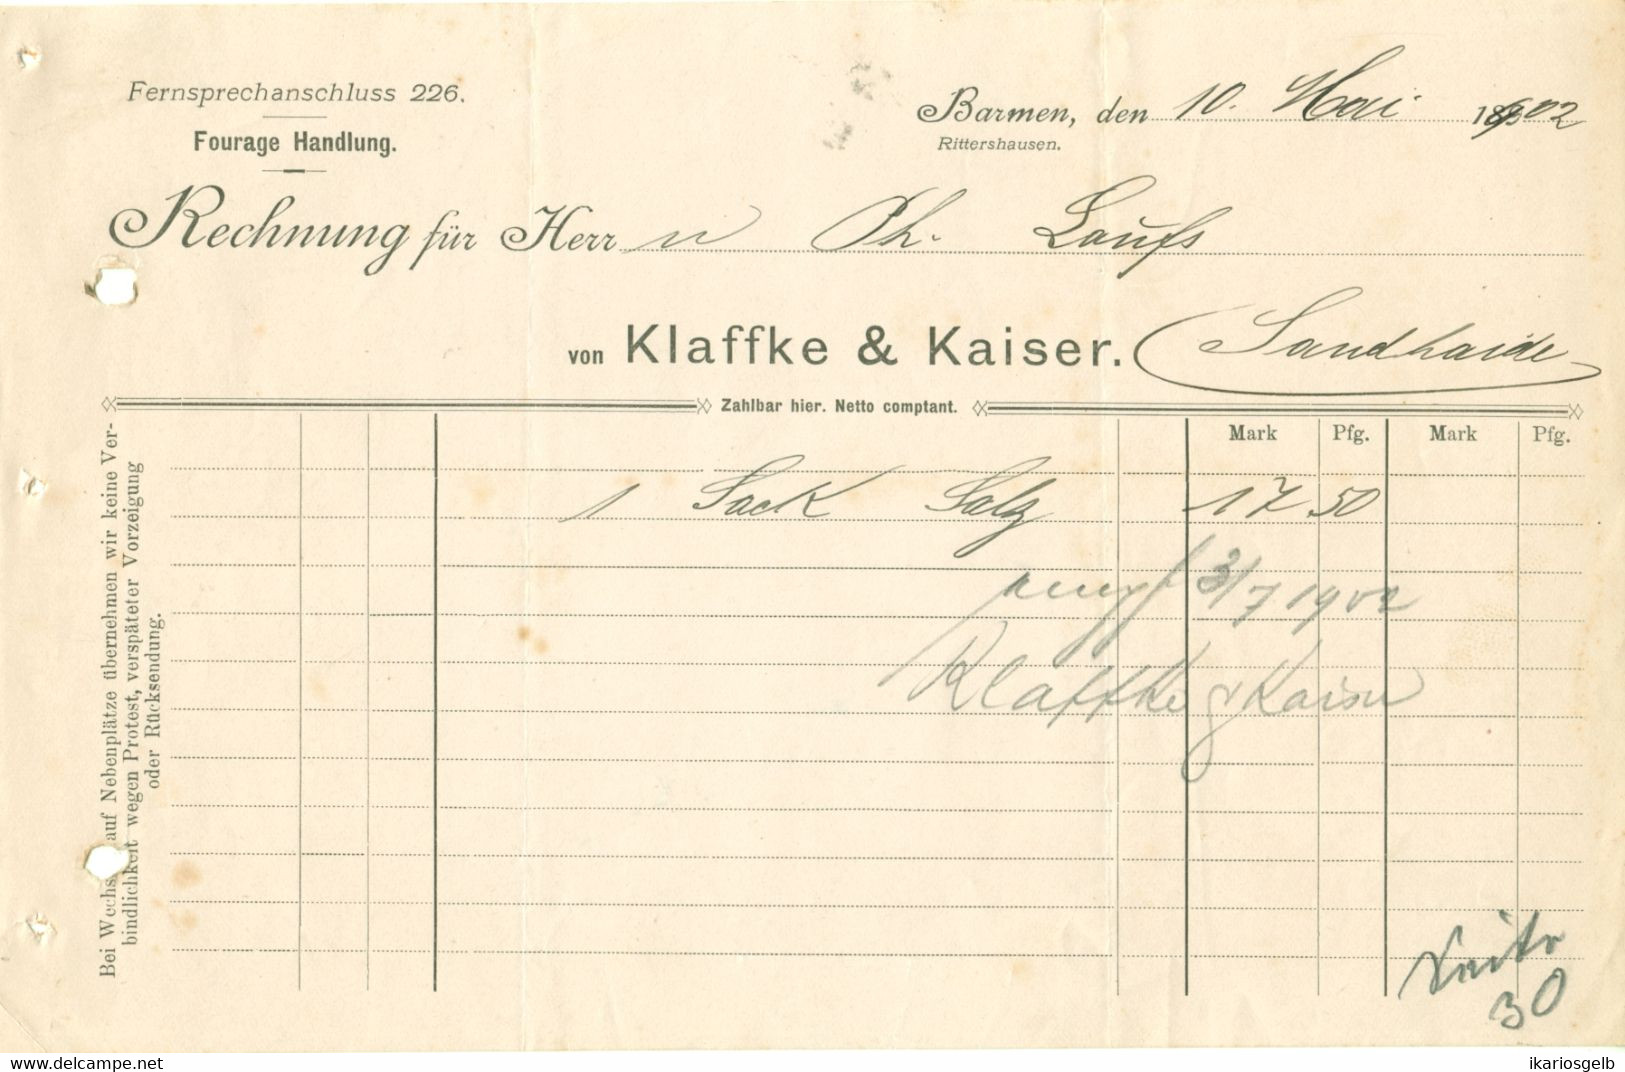 Fernsprechanschluss 226.
Fourage Handlung.
Barmen, den 10. Mai 1902
Rittershausen.
Rechnung für Herrn Ph. Laufs
von Klaffke & Kaiser. Sandhaide
Zahlbar hier. Netto comptant.
Mark Pfg. Mark Pfg.
1 Sack Salz 17.50
3/7 1902
Klaffke & Kaiser
30
Bei Wechs auf Nebenplätze übernehmen wir keine Ver-
bindlichkeit wegen Protest, verspäteter Vorzeigung
oder Rücksendung.
www.delcampe.net
ikariosgelb